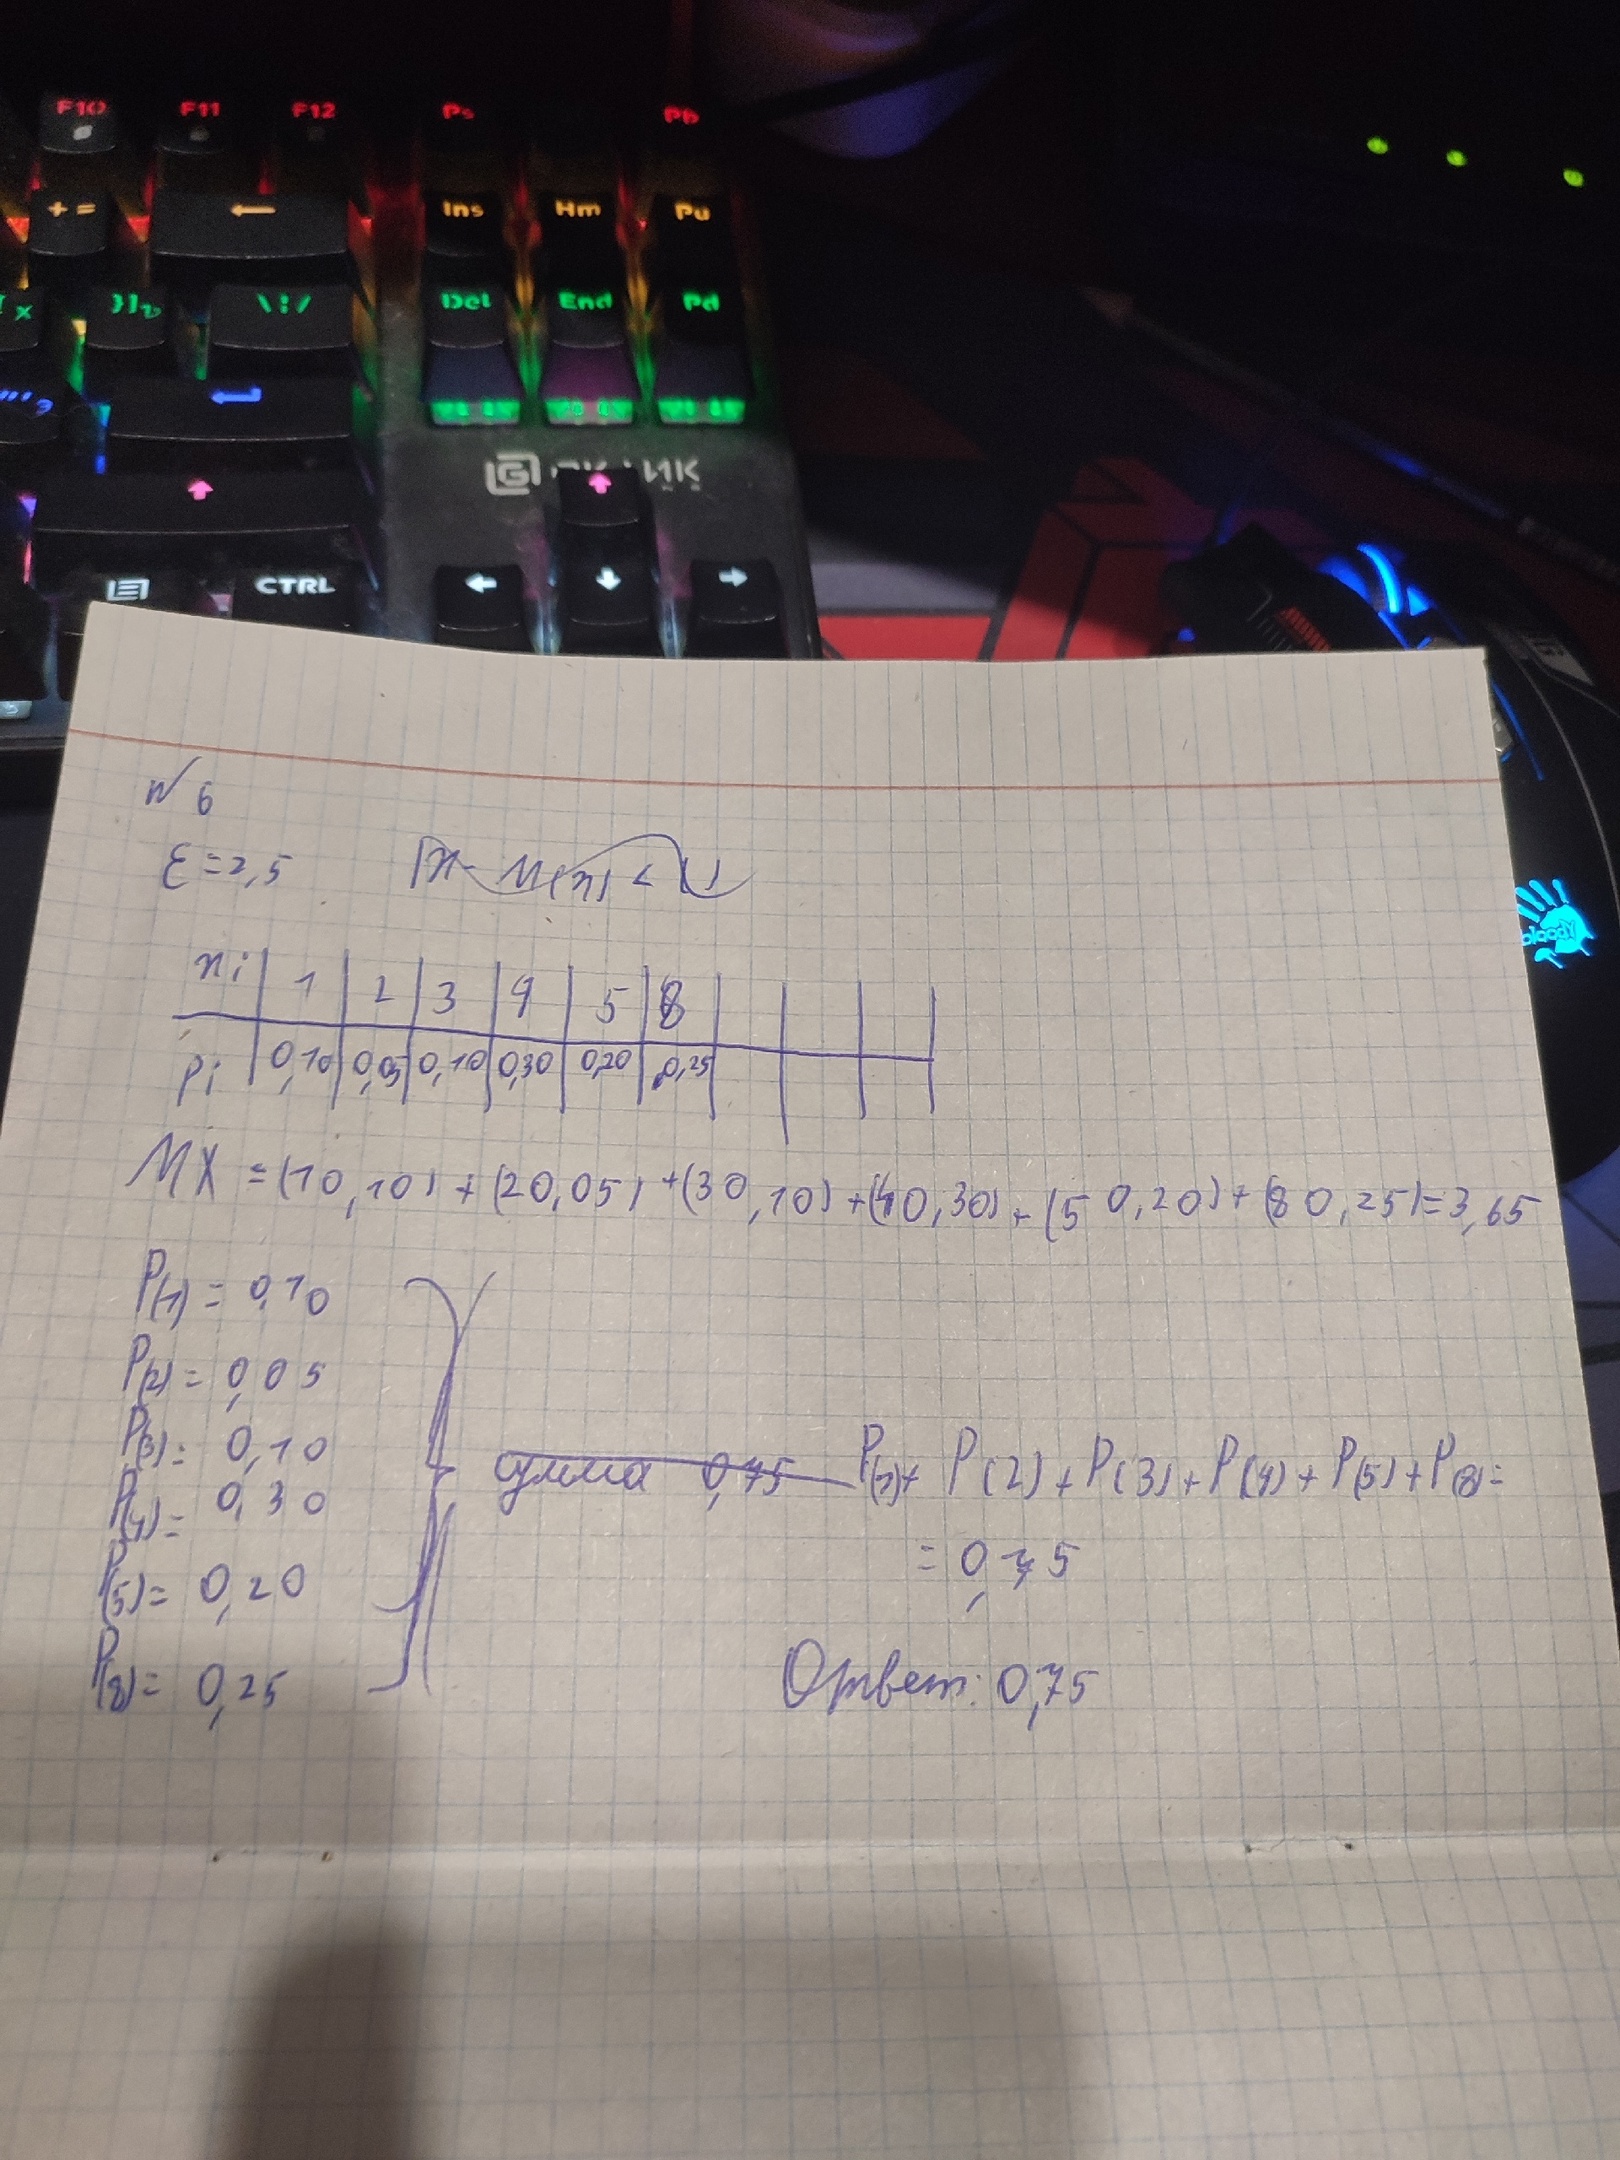 F10 F11 F12 Ps Pb
+ = Ins Hm Pu
\ : / Del End Pd
CTRL
bloody
№ 6
ε = 2,5
xi 1 2 3 4 5 8
pi 0,10 0,05 0,10 0,30 0,20 0,25
MX = (1 0,10) + (2 0,05) + (3 0,10) + (4 0,30) + (5 0,20) + (8 0,25) = 3,65
P(1) = 0,10
P(2) = 0,05
P(3) = 0,10
P(4) = 0,30
P(5) = 0,20
P(8) = 0,25
сумма 0,75 P(1) + P(2) + P(3) + P(4) + P(5) + P(8) =
= 0,75
Ответ: 0,75